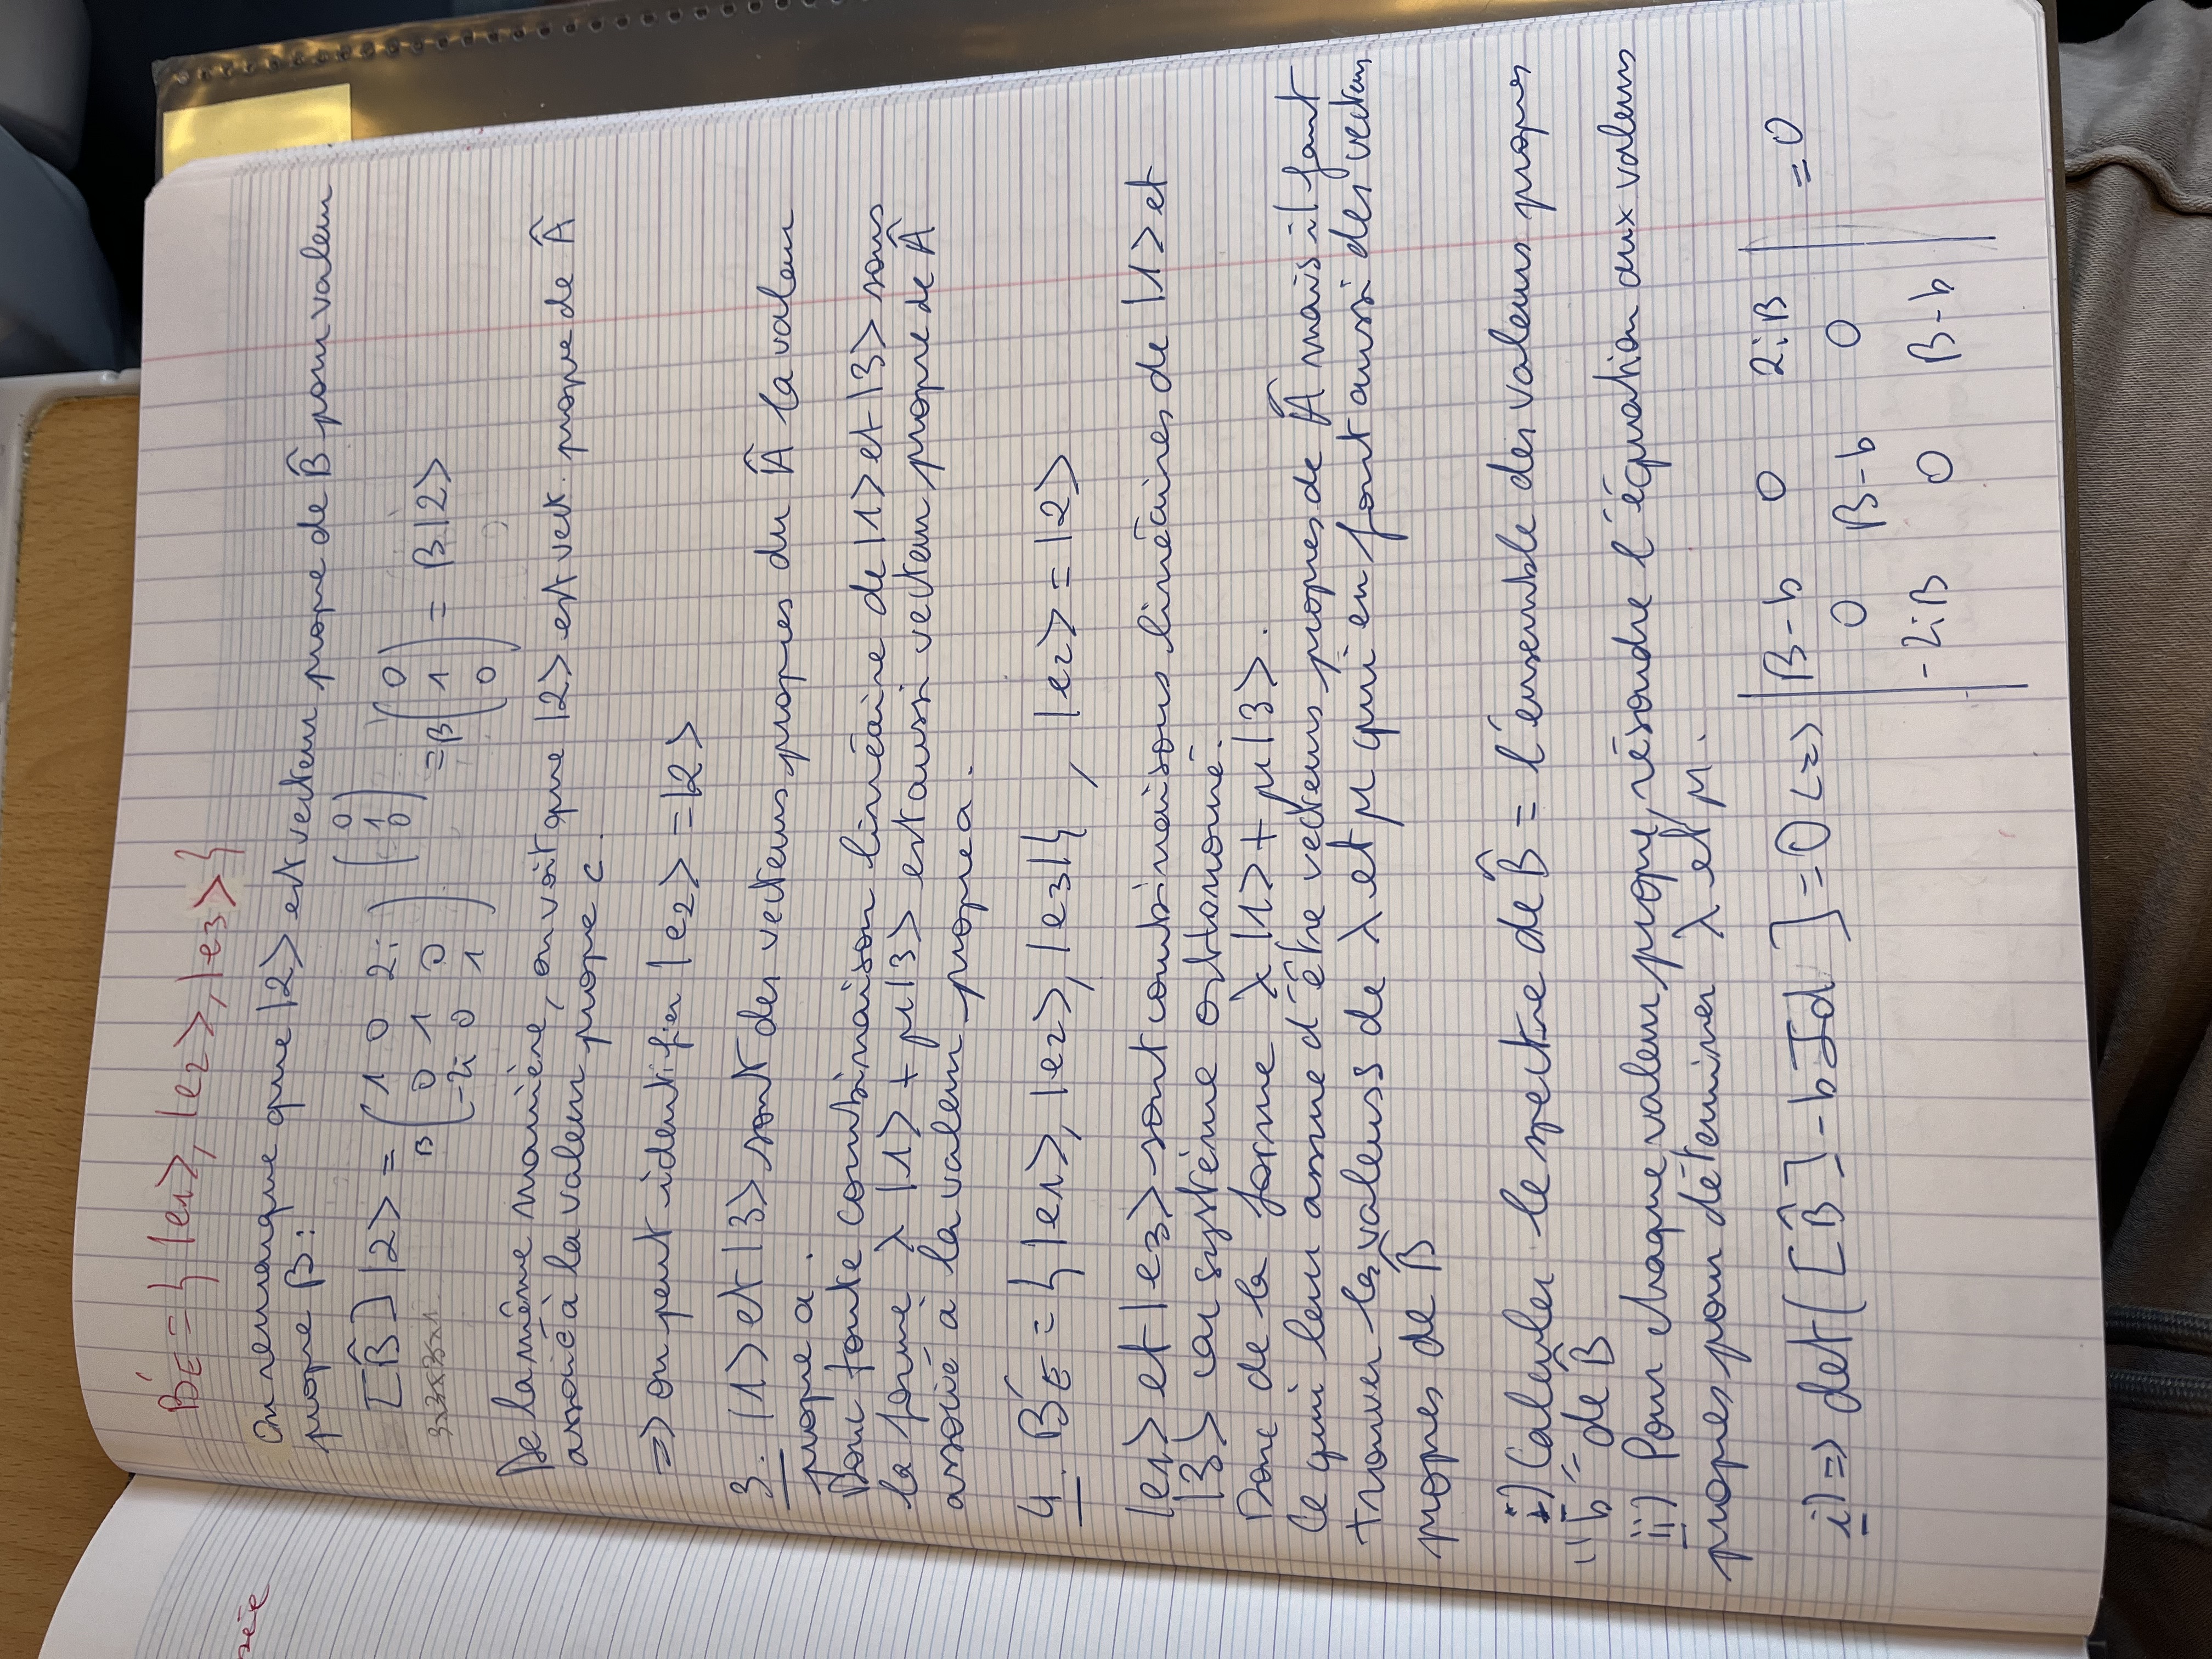 B'E = { |e1>, |e2>, |e3> }
sée
On remarque que |2> est vecteur propre de B̂ pour valeur
propre B :
[B̂] |2> = B ( 1 0 2i ) ( 0 )
0 1 0
-2i 0 1
( 0 1 0 )
= B ( 0 1 0 ) = B |2>
3x3x3x1
De la même manière, on voit que |2> est vect. propre de Â
associé à la valeur propre c.
=> on peut identifier |e2> = |2>
3. |1> et |3> sont des vecteurs propres du Â la valeur
propre a.
Donc toute combinaison linéaire de |1> et |3> sous
la forme λ |1> + μ |3> est aussi vecteur propre de Â
associé à la valeur propre a.
4. B'E = { |e1>, |e2>, |e3| } , |e2> = |2>
|e1> et |e3> sont combinaisons linéaires de |1> et
|3> car système orthonomé.
Donc de la forme λ |1> + μ |3>.
Ce qui leur assure d'être vecteurs propres de Â mais il faut
trouver les valeurs de λ et μ qui en font aussi des vecteurs
propres de B̂
i) Calculer le spectre de B̂ = l'ensemble des valeurs propres
"b" de B̂
ii) Pour chaque valeur propre, résoudre l'équation aux valeurs
propres pour déterminer λ et μ.
i) => det( [B̂] - b Id ] = 0 <=> | B-b 0 2iB | = 0
0 B-b 0
-2iB 0 B-b